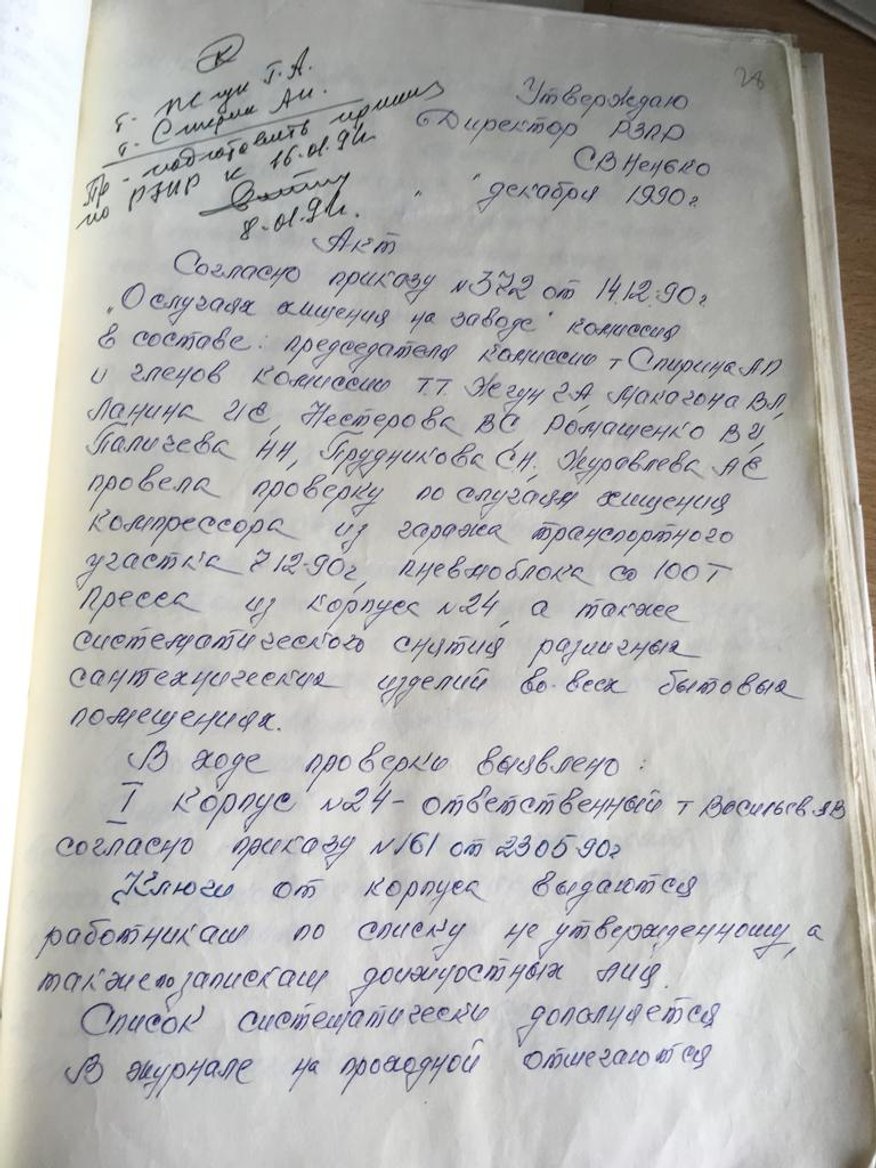 28
К
т. Жгун Г.А.
т. Спирин А.П.
Пр - подготовить приказ
по РЗПР к 16.01.91г.
8.01.91г.
Утверждаю
Директор РЗПР
СВ Ненько
" " декабря 1990г.
Акт
Согласно приказу №372 от 14.12.90г.
"О случаях хищения на заводе" комиссия
в составе: председателя комиссии т Спирина АП
и членов комиссии т.т. Жгун ГА, Макагона ВЛ,
Ланина ИЕ, Нестерова ВС, Ромашенко ВИ,
Паличева НН, Прудникова СН. Журавлева АЕ
провела проверку по случаям хищения
компрессора из гаража транспортного
участка 7.12.90г, пневмоблока со 100Т
пресса из корпуса №24, а также
систематического снятия различных
сантехнических изделий во всех бытовых
помещениях.
В ходе проверки выявлено:
I корпус №24 - ответственный т Васильев ЯВ
согласно приказу №161 от 23.05.90г
Ключи от корпуса выдаются
работникам по списку не утвержденному, а
также по запискам должностных лиц.
Список систематически дополняется
В журнале на проходной отмечаются